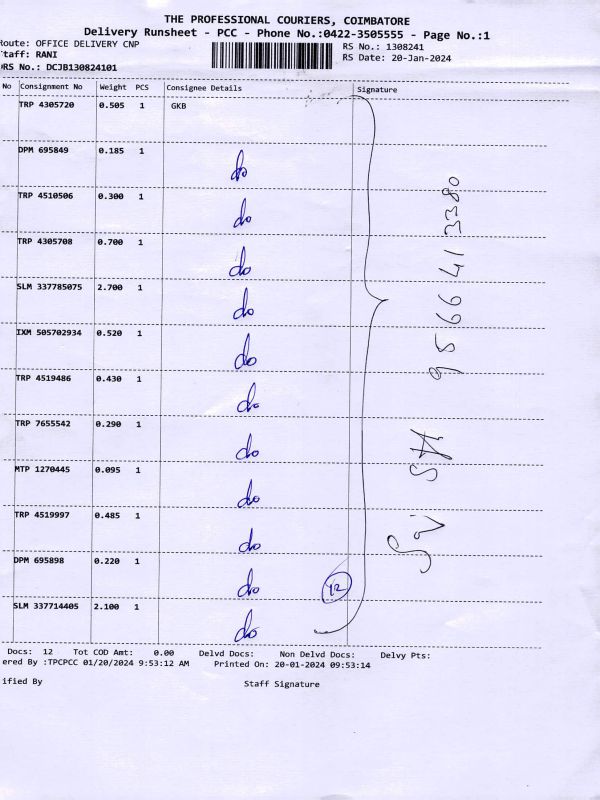 THE PROFESSIONAL COURIERS, COIMBATORE
Delivery Runsheet - PCC - Phone No.:0422-3505555 - Page No.:1
Route: OFFICE DELIVERY CNP
RS No.: 1308241
taff: RANI
RS Date: 20-Jan-2024
RS No.: DCJB130824101
No Consignment No Weight PCS Consignee Details Signature
TRP 4305720 0.505 1 GKB
DPM 695849 0.185 1 do
TRP 4510506 0.300 1 do
TRP 4305708 0.700 1 do
SLM 337785075 2.700 1 do
IXM 505702934 0.520 1 do
TRP 4519486 0.430 1 do
TRP 7655542 0.290 1 do
MTP 1270445 0.095 1 do
TRP 4519997 0.485 1 do
DPM 695898 0.220 1 do 12
SLM 337714405 2.100 1 do
9566413380
Docs: 12 Tot COD Amt: 0.00 Delvd Docs: Non Delvd Docs: Delvy Pts:
ered By :TPCPCC 01/20/2024 9:53:12 AM Printed On: 20-01-2024 09:53:14
ified By Staff Signature